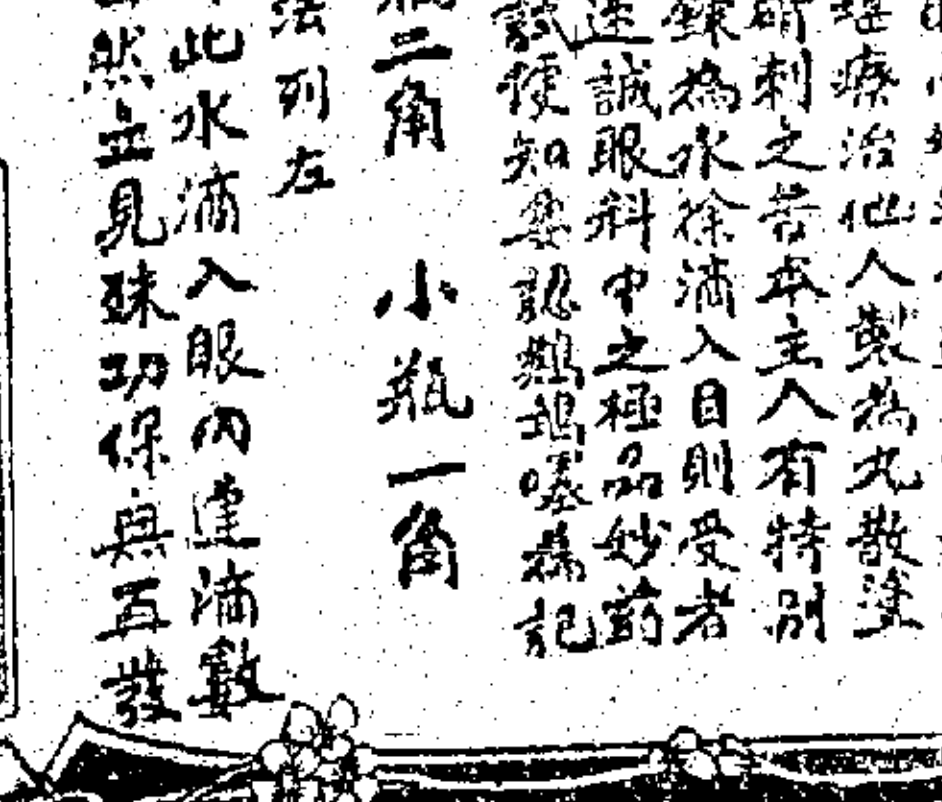 堪療治他人製為丸散塗
研刺之苦本主人有特別
鍊為水徐滴入目則受者
速誠眼科中之極品妙药
試便知要認鷓鴣喼為記
瓶二角 小瓶一角
法列左
此水滴入眼內連滴數
然立見殊功保無再發